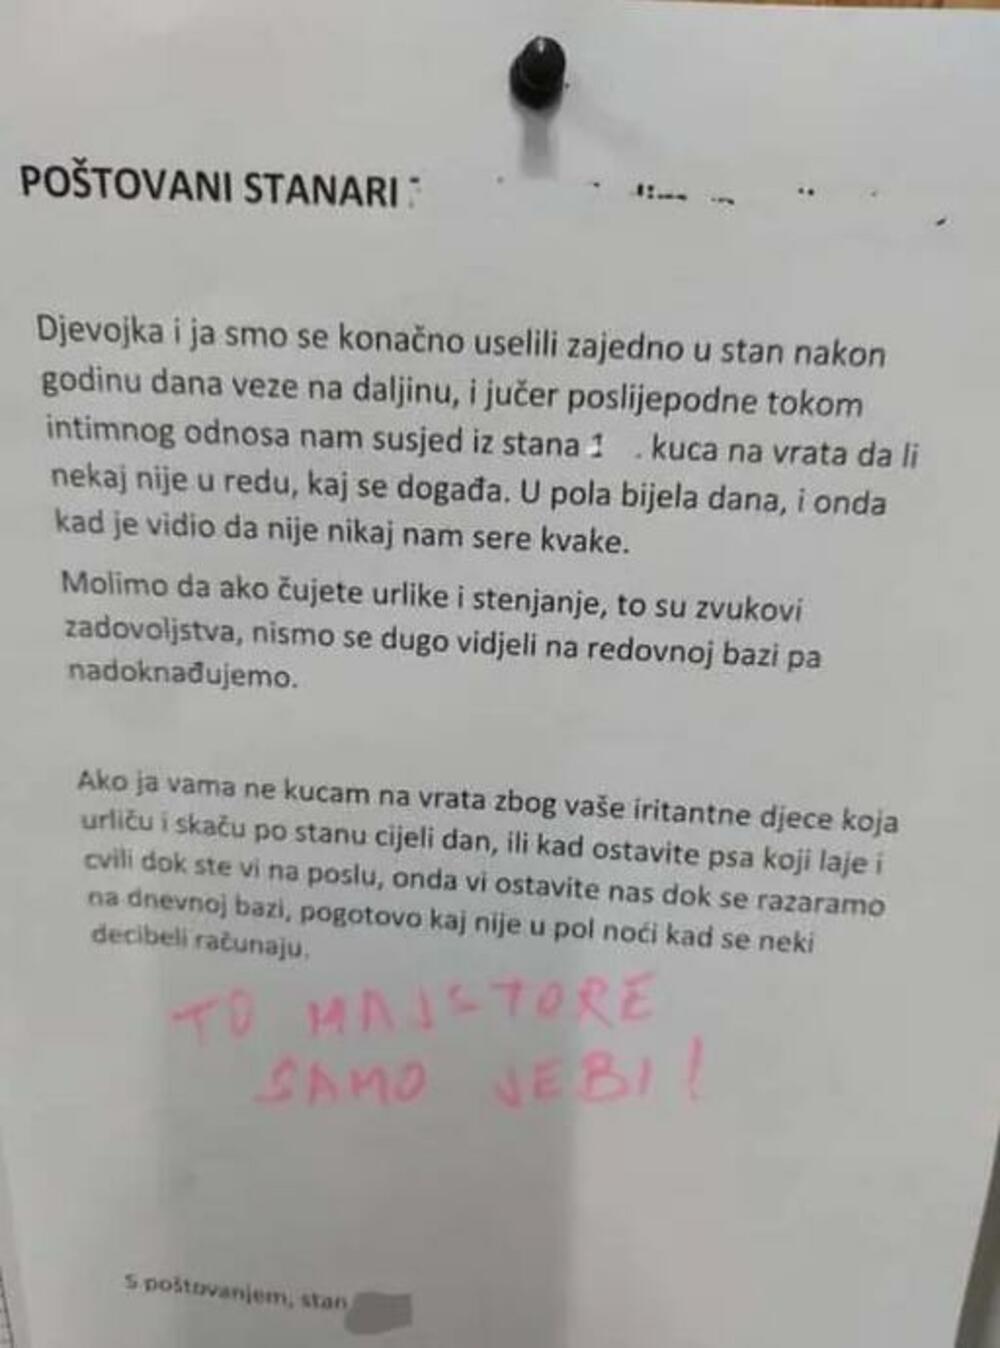 POŠTOVANI STANARI
Djevojka i ja smo se konačno uselili zajedno u stan nakon
godinu dana veze na daljinu, i jučer poslijepodne tokom
intimnog odnosa nam susjed iz stana 1 . kuca na vrata da li
nekaj nije u redu, kaj se događa. U pola bijela dana, i onda
kad je vidio da nije nikaj nam sere kvake.
Molimo da ako čujete urlike i stenjanje, to su zvukovi
zadovoljstva, nismo se dugo vidjeli na redovnoj bazi pa
nadoknađujemo.
Ako ja vama ne kucam na vrata zbog vaše iritantne djece koja
urliču i skaču po stanu cijeli dan, ili kad ostavite psa koji laje i
cvili dok ste vi na poslu, onda vi ostavite nas dok se razaramo
na dnevnoj bazi, pogotovo kaj nije u pol noći kad se neki
decibeli računaju.
TO MAJSTORE
SAMO JEBI!
S poštovanjem, stan